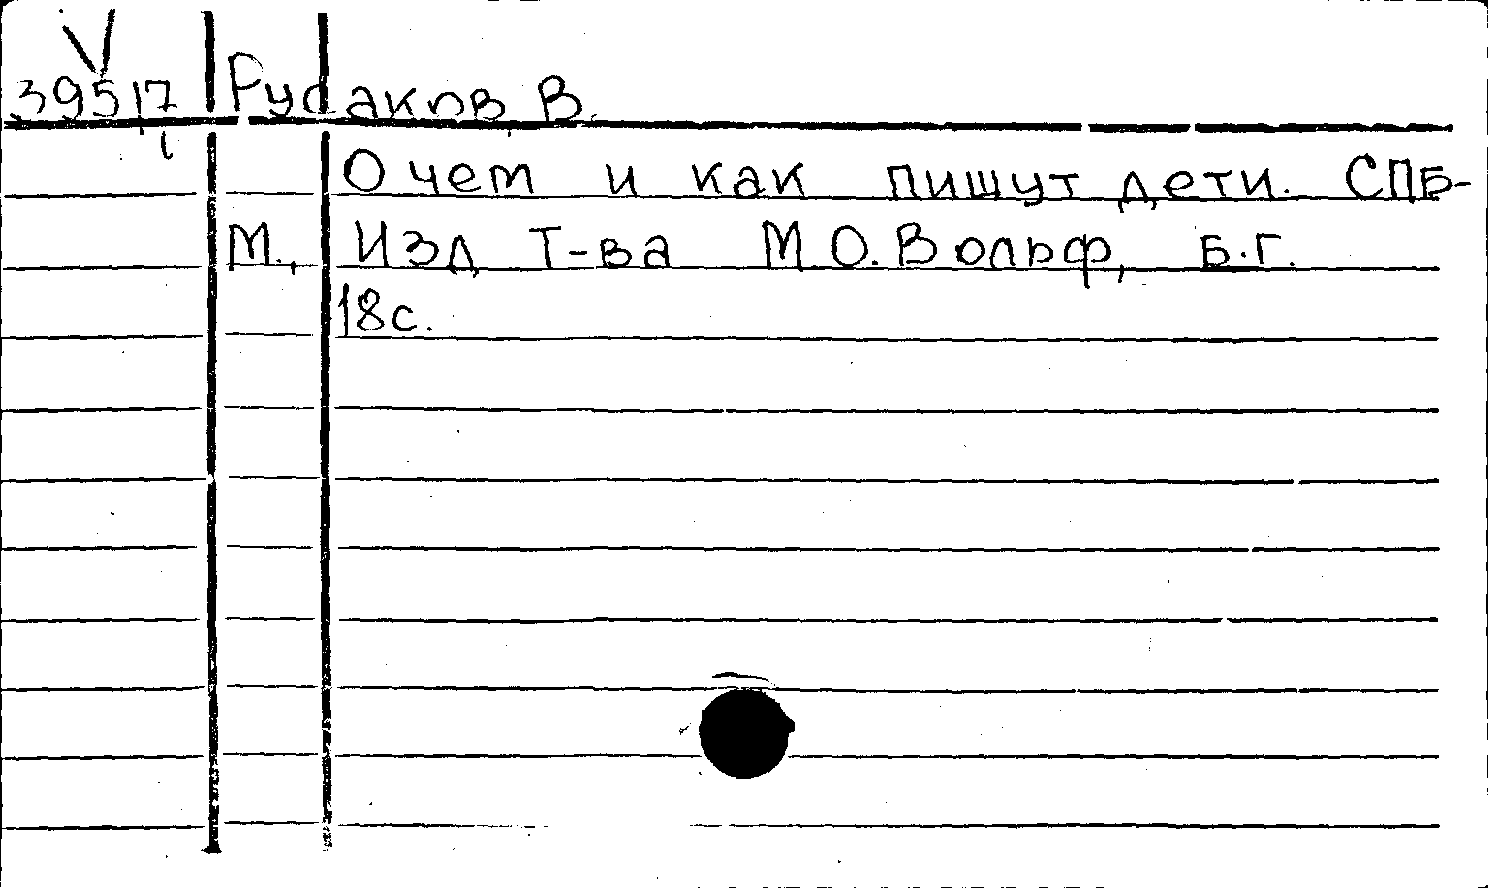 V
39517 Рудаков, В.
О чем и как пишут дети. СПБ-
М., Изд Т-ва М О. Вольф, Б.Г.
18с.